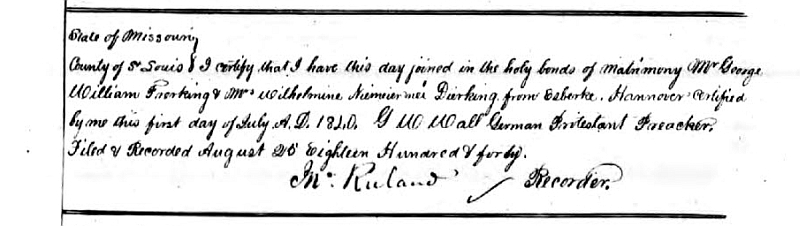 State of Missouri
County of St Louis } I certify that I have this day joined in the holy bonds of matrimony Mr George
William Frorking & Mrs Wilhelmine Niemiermei Durking from Esberke, Hannover Certified
by me this first day of July A.D. 1840. G W Wall German Protestant Preacher.
Filed & Recorded August 25 Eighteen Hundred & forty.
Jno. Ruland Recorder.